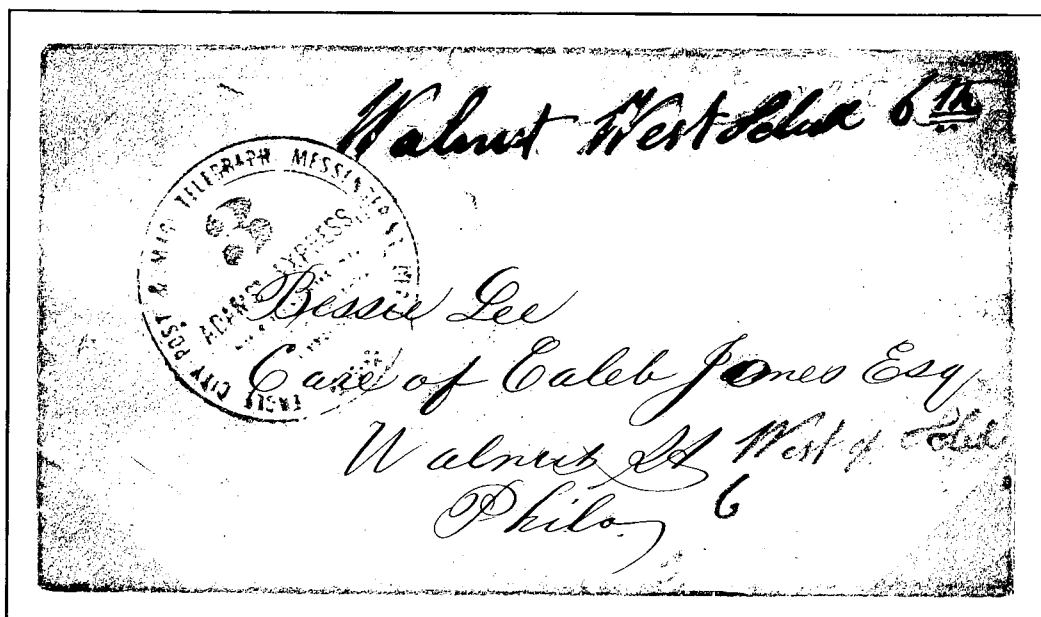 Walnut West Schul 6th
CITY POST & MAG. TELEGRAPH MESSENGERS
ADAMS' EXPRESS
Bessie Lee
Care of Caleb Jones Esq
Walnut St West of Schul
6
Phila
EAGLE